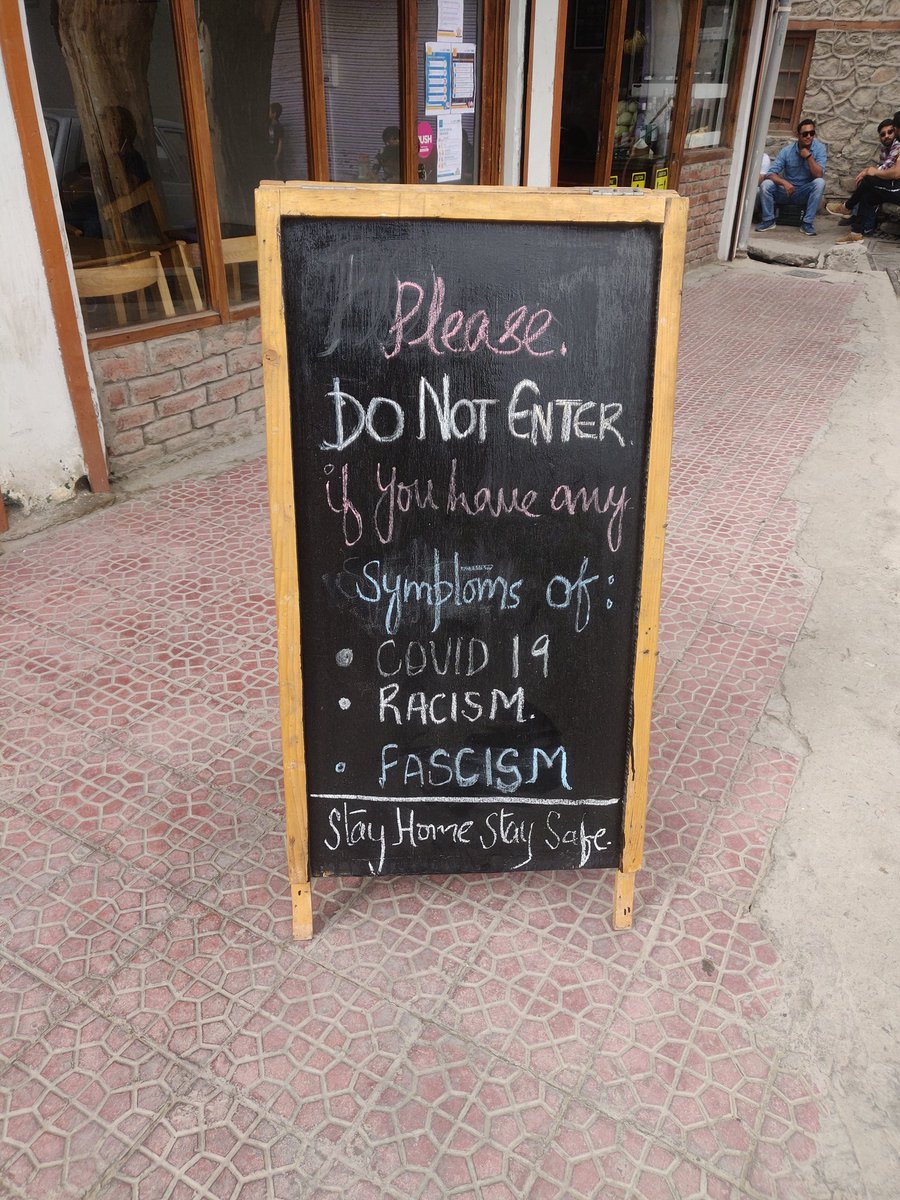 Please.
DO NOT ENTER.
if you have any
Symptoms of:
• COVID 19
• RACISM.
• FASCISM
Stay Home Stay Safe.